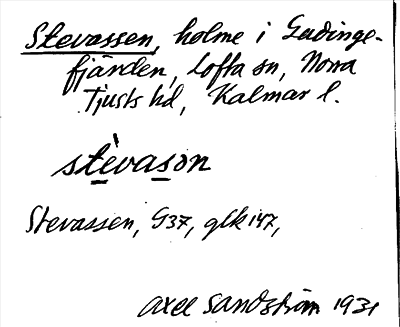 Stevassen, holme i Gudinge-
fjärden, Lofta sn, Norra
Tjusts hd, Kalmar l.
stèvason
Stevassen, G37, glk 147,
Axel Sandström 1931